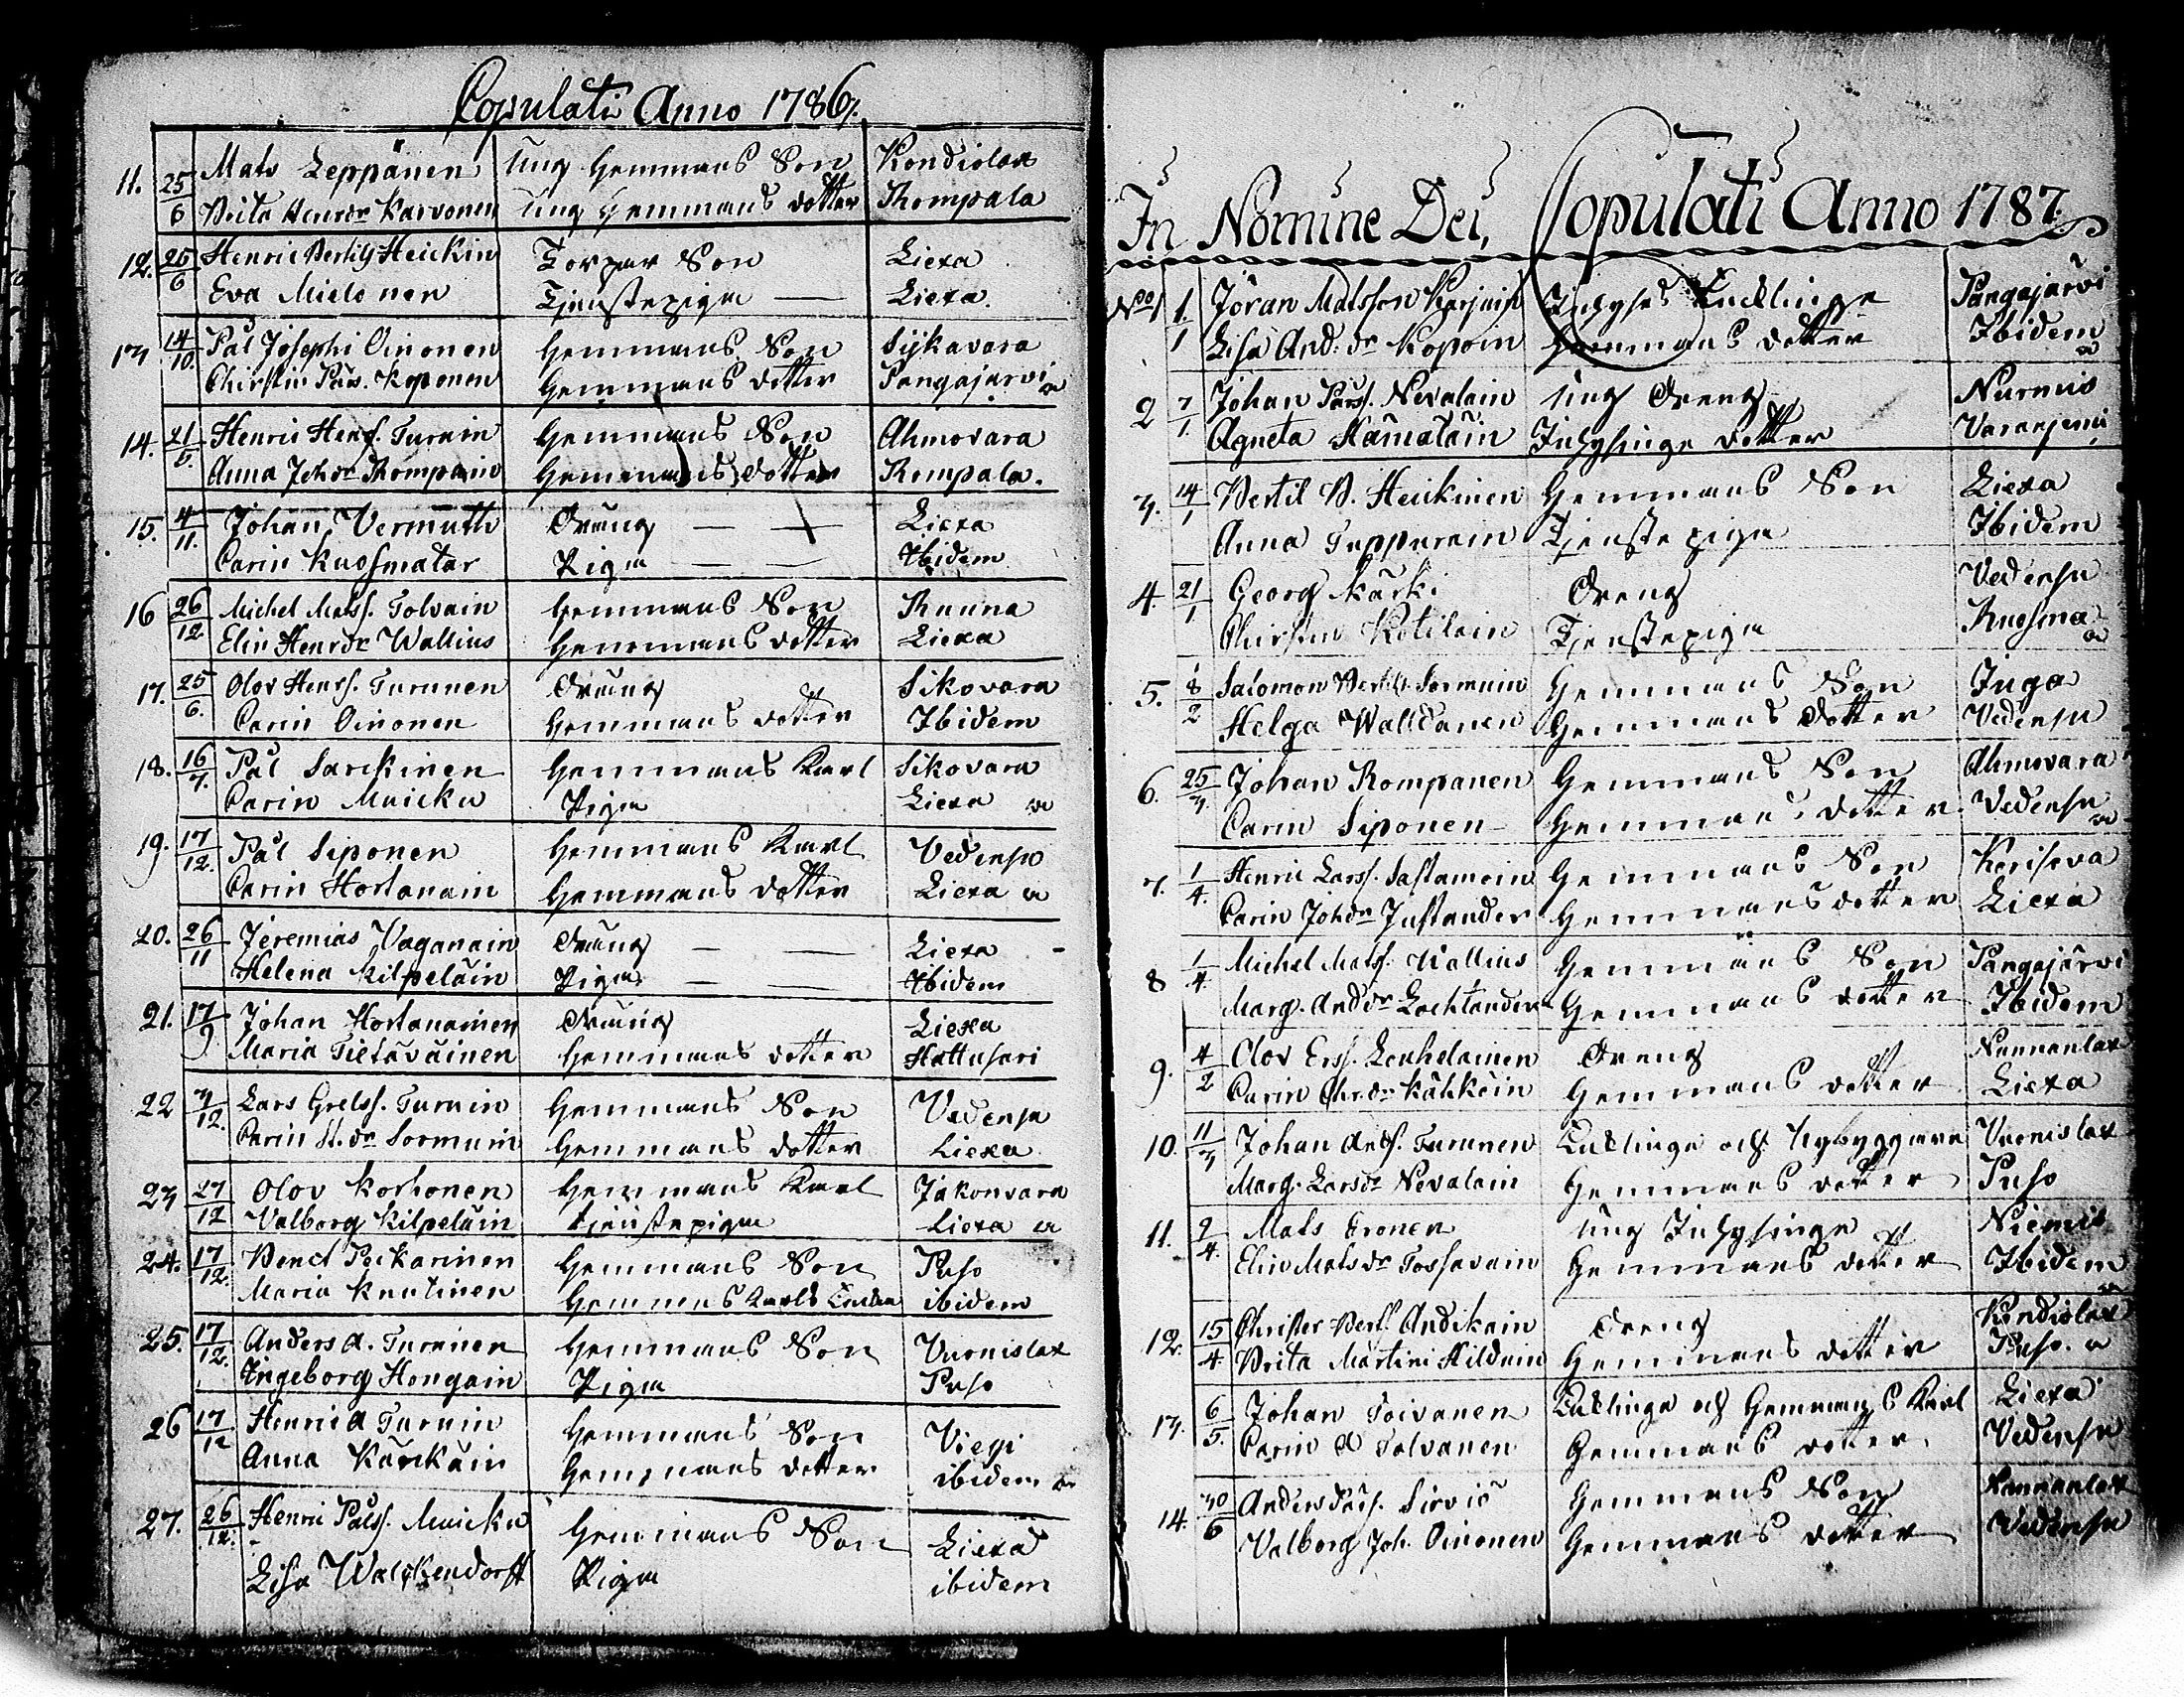 Copulati Anno 1786.
11. 25/6 Mats Leppänen Ung Hemmans Son Kondiolax
Brita Henrdr Karvonen Ung Hemmans dotter Rompala
12. 25/6 Henric Bertilss Heickin Torpar Son Liexa
Eva Mielonen Tjenstepiga — Liexa.
13 14/10. Pål Josephi Oinonen Hemmans Son Sijkavara
Chirstin Påv. Koponen Hemmans dotter Pangajärvi
14. 21/5. Henric Henrs. Turuin Hemmans Son Ahmovara
Anna Johdr Rompain Hemmans dotter Rompala.
15. 4/11. Johan Vermuth Dräng — — Liexa
Carin Kuosmatar Piga — — Ibidem
16 26/12 Michel Matss. Tolvain Hemmans Son Ruuna
Elin Henrdr Wallius Hemmans dotter Liexa
17. 25/6. Olov Henrs. Turunen Dräng Sikovara
Carin Oinonen Hemmans dotter Ibidem
18. 16/7. Pål Sarckinen Hemmans Karl Sikovara
Carin Muicku Piga Liexa
19. 17/12. Pål Siponen Hemmans Karl Vedensu
Carin Hortanain Hemmans dotter Liexa
20. 26/11 Jeremias Vaganain Dräng — — Liexa
Helena Kilpeläin Piga — — Ibidem
21. 17/9 Johan Hortanainen Dräng Liexa
Maria Tietäväinen Hemmans dotter Hattusari
22 3/12. Lars Grelss. Turuin Hemmans Son Vedensu
Carin St. dr Sormuin Hemmans dotter Liexa
23 27/12 Olov Korhonen Hemmans Karl Jakonvara
Valborg Kilpeläin tjenstepiga Liexa
24. 17/12. Bend Peckarinen Hemmans Son Puso
Maria Knutinen Hemmans Karls Enka ibidem
25. 17/12. Anders A. Turunen Hemmans Son Vuonislax
Ingeborg Hongain Piga Puso
26 17/12 Henric A Turuin Hemmans Son Viegi
Anna Kärckäin Hemmans dotter ibidem
27. 26/12. Henric Pålss. Muicku Hemmans Son Liexa
Lisa Walckendorff Piga ibidem
In Nomine Dei, Copulati Anno 1787.
No 1 1/1 Jöran Matsson Karjain Inhyses Encklinge Pangajärvi
Lisa And. dr Kopoin Hemmans dotter Ibidem
2 7/1. Johan Pärss. Nevalain Ung Dreng Nurmis
Agneta Hämäläin Inhysinge dotter Varanjemi
3. 14/1 Bertil B. Heickinen Hemmans Son Liexa
Anna Tuppurain Tjenste piga Ibidem
4. 21/1 Georg Kärki Dreng Vedensu
Chirstin Kotilain Tjenstepiga Kuosma
5. 18/2 Salomon Bertilss Sormuin Hemmans Son Juga
Helga Walldanen Hemmans dotter Vedensu
6. 25/3 Johan Rompanen Hemmans Son Ahmovara
Carin Siponen Hemmans dotter Vedensu
7. 1/4. Henric Larss. Sastamoin Hemmans Son Koriseva
Carin Johdr Justander Hemmans dotter Liexa
8 1/4 Michel Matss. Wallius Hemmans Son Pangajärvi
Marg. Anddr Lochtander Hemmans dotter Ibidem
9. 4/2 Olov Erss. Leuhelainen Dreng Nunnanlax
Carin Chr.dr Kähköin Hemmans dotter Liexa
10. 11/3 Johan Ands. Turunen Encklinge och Nybyggare Vuonislax
Marg. Larsdr Nevalain Hemmans dotter Puso
11. 9/4. Mats Eronen Ung Inhysinge Niemis
Elin Matsdr Tossavain Hemmans dotter Ibidem
12. 15/4 Christer Bertss Andikain Dreng Kondiolax
Brita Martini Hilduin Hemmans dotter Puso.
13. 6/5. Johan Toivanen Encklinge och Hemmans Karl Liexa
Carin A Tolvanen Hemmans dotter Vedensu
14. 30/6 Anders Pårs. Sirviö Hemmans Son Nunnanlax
Valborg Joh. Oinonen Hemmans dotter Vedensu